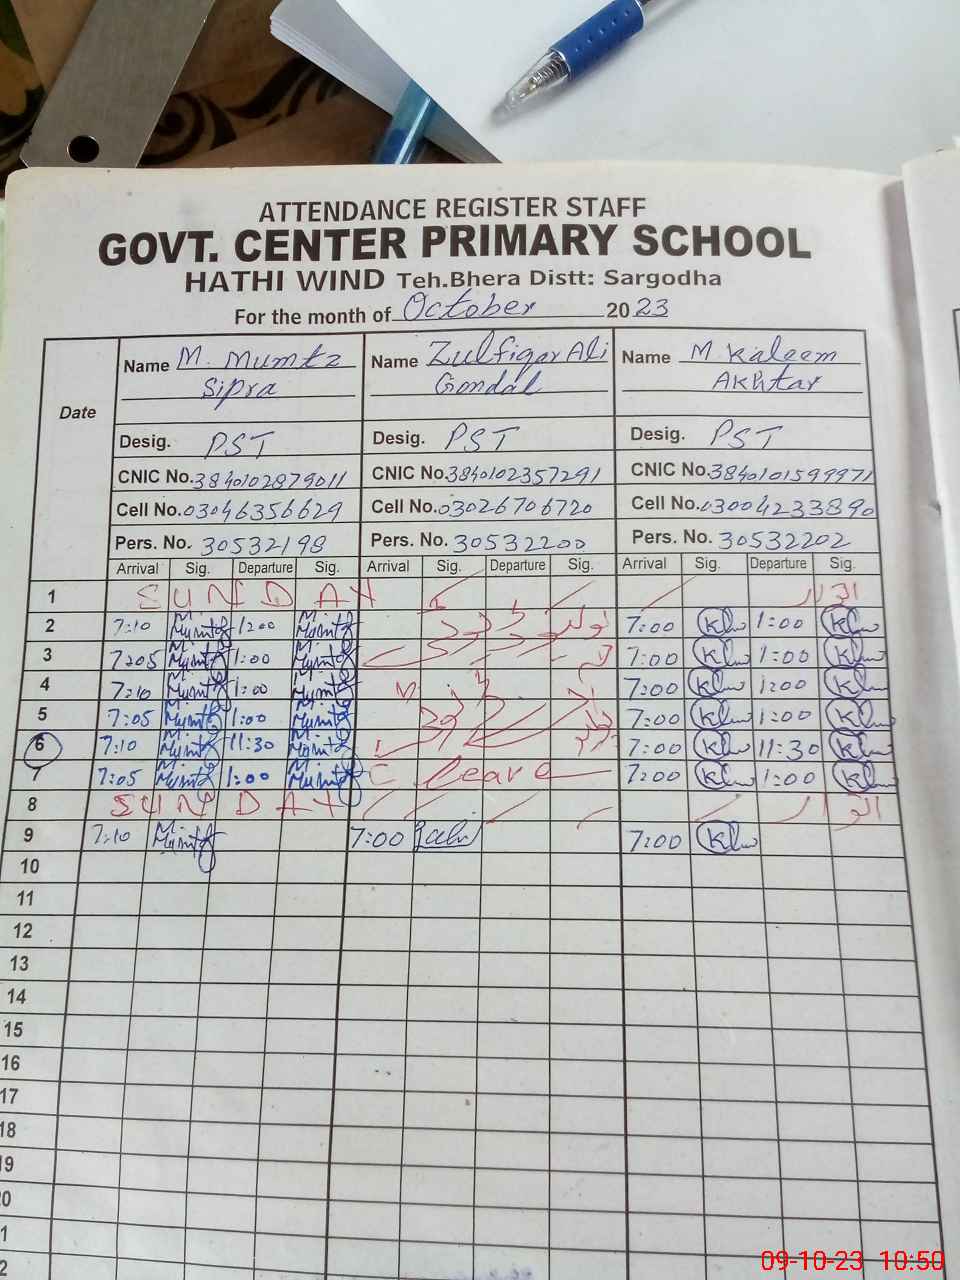 ATTENDANCE REGISTER STAFF
GOVT. CENTER PRIMARY SCHOOL
HATHI WIND Teh.Bhera Distt: Sargodha
For the month of October 2023
Date
Name M. Mumtz Name Zulfiqar Ali Name M Kaleem
Sipra Gondal Akhtar
Desig. PST Desig. PST Desig. PST
CNIC No.3840102879011 CNIC No.3840102357291 CNIC No.3840101599971
Cell No.03046356629 Cell No.03026706720 Cell No.03004233890
Pers. No. 30532198 Pers. No. 30532200 Pers. No. 30532202
Arrival Sig. Departure Sig. Arrival Sig. Departure Sig. Arrival Sig. Departure Sig.
1 SUNDAY اتوار
2 7:10 Mumtz 1:00 Mumtz 7:00 Klw 1:00 Klw
3 7:05 Mumtz 1:00 Mumtz 7:00 Klw 1:00 Klw
4 7:10 Mumtz 1:00 Mumtz 7:00 Klw 1:00 Klw
5 7:05 Mumtz 1:00 Mumtz 7:00 Klw 1:00 Klw
6 7:10 Mumtz 11:30 Mumtz 7:00 Klw 11:30 Klw
7 7:05 Mumtz 1:00 Mumtz C leave 7:00 Klw 1:00 Klw
8 SUNDAY اتوار
9 7:10 Mumtz 7:00 7:00 Klw
10
11
12
13
14
15
16
17
18
19
20
1
2
09-10-23 10:50